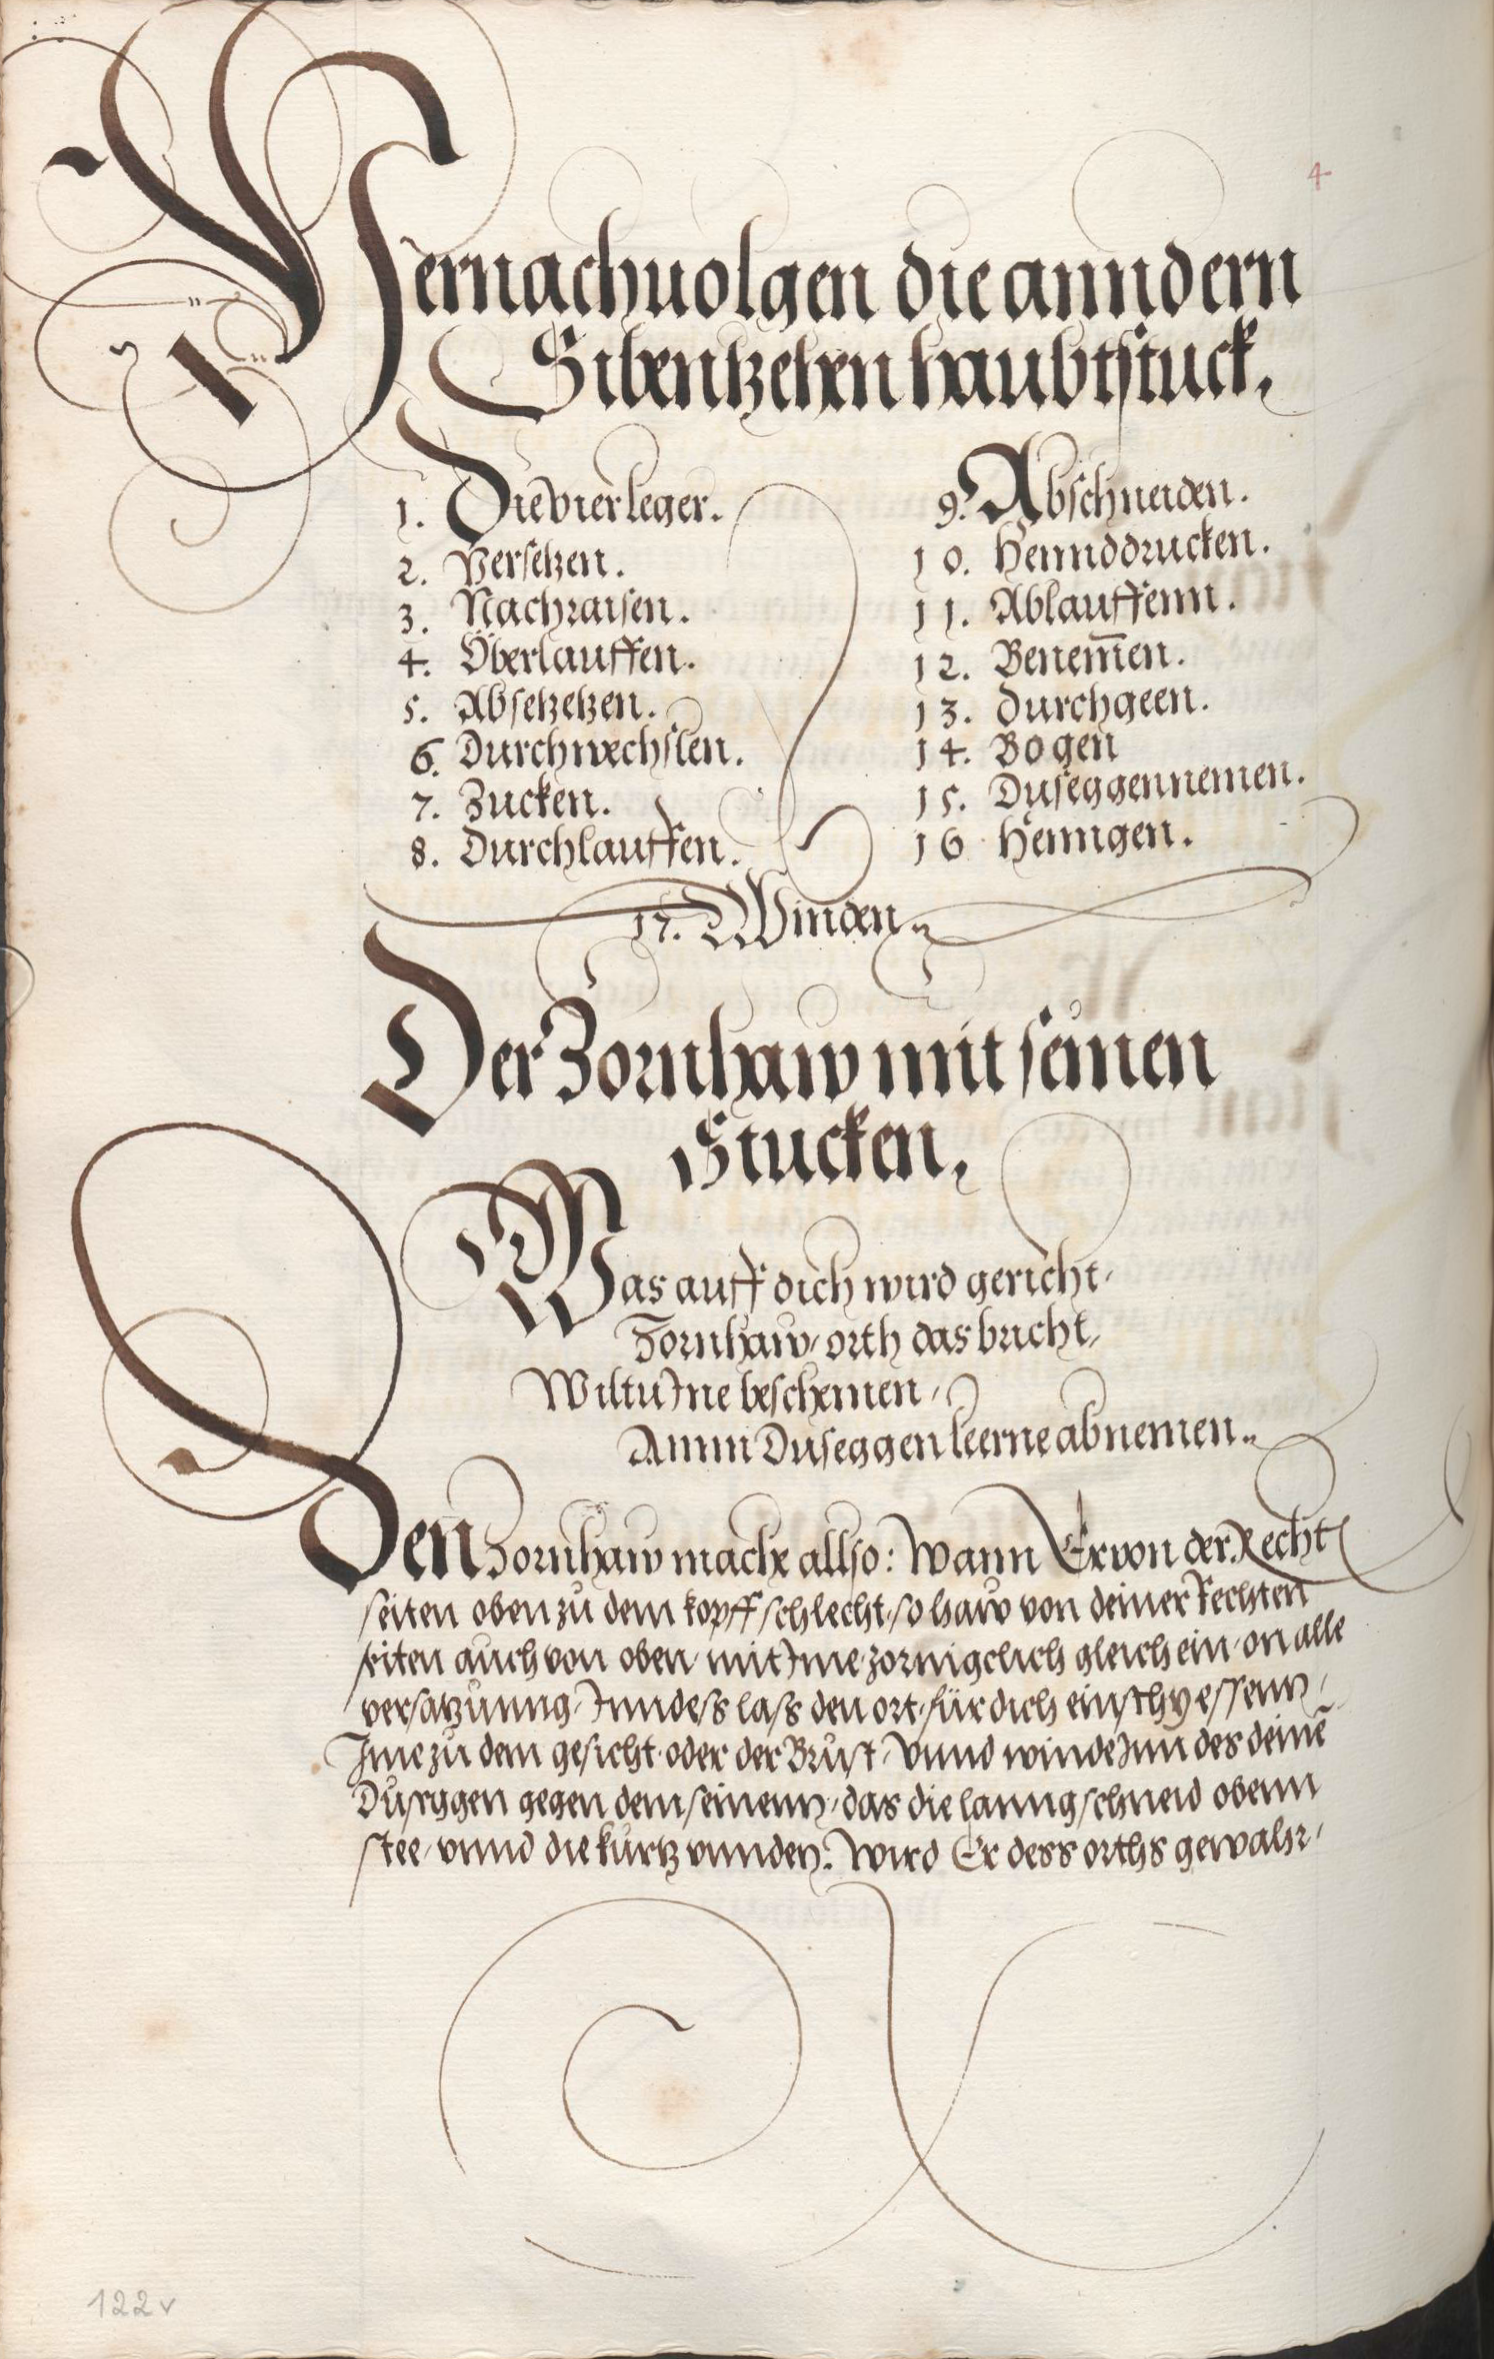 4
Hernachuolgen die anndern
Sibentzehen haubtstuck.
1. Die vier leger.
2. Versetzen.
3. Nachraisen.
4. Überlauffen.
5. Absetzetzen.
6. Durchwechslen.
7. Zucken.
8. Durchlauffen.
9. Abschneiden.
10. Hennddrucken.
11. Ablauffenn.
12. Benem̄en.
13. Durchgeen.
14. Bogen
15. Duseggen nemen.
16 Henngen.
17. Winden.
Der Zornhaw mit seinen
Stucken.
Was auff dich wird gericht,
Zornhaw, orth das bricht,
Wiltu Ine beschemen,
Amm Duseggen leerne abnemen.
Den Zornhaw mache allso: Wann Er von der Recht
seiten oben zu dem kopff schlecht, so haw von deiner Rechten
seiten auch von oben, mit Ime zornigclich gleich ein, on alle
versatzunng, Inndess lass den ort, für dich einschyessenn,
Ime zu dem gesicht, oder der Brust, Vnnd winde Inn des deinē
Dusrggen gegen dem seinenn, das die lanng schneid obenn
stee, vnnd die kurtz vnnden. Wird Er dess orths gewahr,
122v